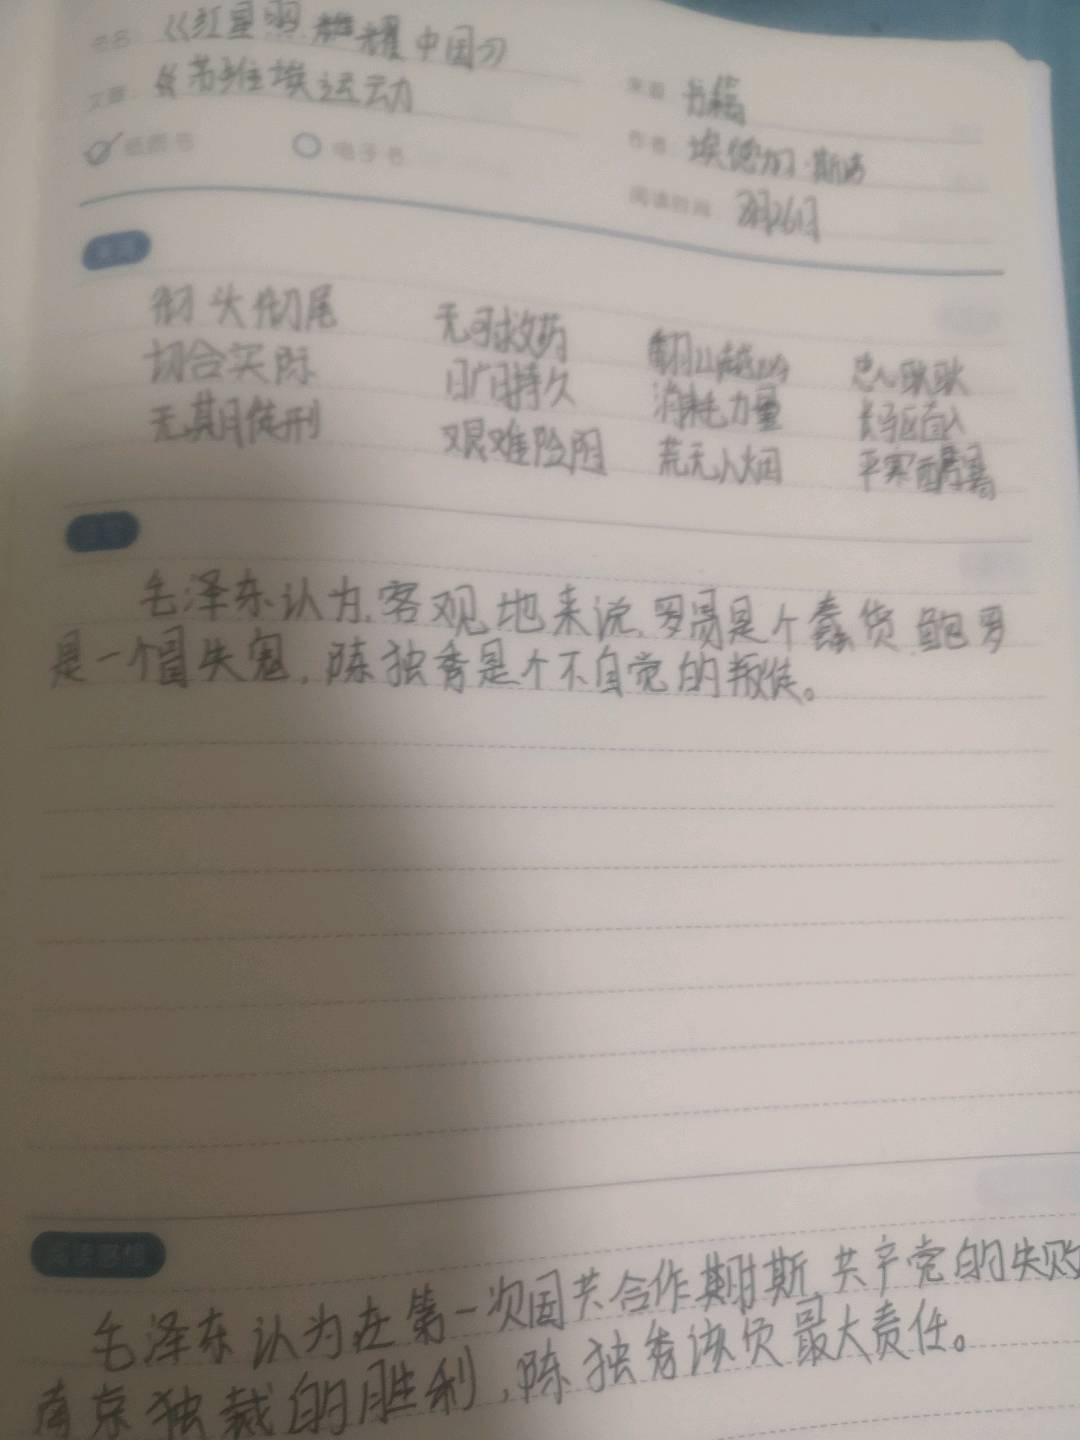 《红星照耀中国》
《苏维埃运动
书籍
作者 埃德加·斯诺
纸质书 电子书
阅读时间 月26日
彻头彻尾 无可救药 翻山越岭 忠心耿耿
切合实际 旷日持久 消耗力量 长驱直入
无期徒刑 艰难险阻 荒无人烟
毛泽东认为,客观地来说,罗易是个蠢货 鲍罗
是一个冒失鬼,陈独秀是个不自觉的叛徒。
阅读感悟
毛泽东认为在第一次国共合作 共产党的失败
南京独裁的胜利,陈独秀该负最大责任。